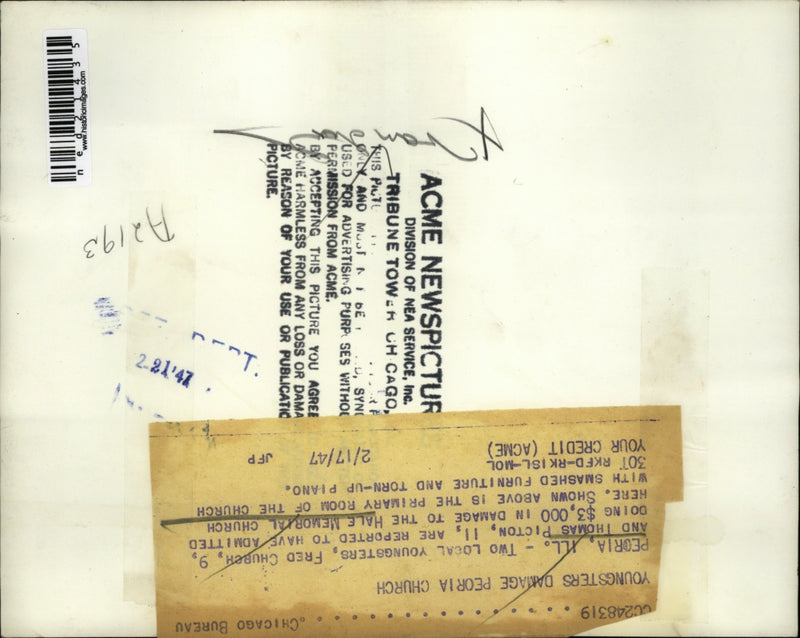 ned21435
www.historicimages.com
A2193
2-21'47
ACME NEWSPICTUR
DIVISION OF NEA SERVICE, Inc.
TRIBUNE TOWER CHICAGO,
THIS
ONLY AND MUST BE SYN
USED FOR ADVERTISING PURPOSES WITHOU
PERMISSION FROM ACME.
BY ACCEPTING THIS PICTURE YOU AGREE
ACME HARMLESS FROM ANY LOSS OR DAMA
BY REASON OF YOUR USE OR PUBLICATIO
PICTURE.
CC248319 . . . . . . . . . . . . . . . .CHICAGO BUREAU
YOUNGSTERS DAMAGE PEORIA CHURCH
PEORIA, ILL. - TWO LOCAL YOUNGSTERS, FRED CHURCH, 9,
AND THOMAS PICTON, 11, ARE REPORTED TO HAVE ADMITTED
DOING $3,000 IN DAMAGE TO THE HALE MEMORIAL CHURCH
HERE. SHOWN ABOVE IS THE PRIMARY ROOM OF THE CHURCH
WITH SMASHED FURNITURE AND TORN-UP PIANO.
30T RKFD-RKISL-MOL
YOUR CREDIT (ACME) 2/17/47 JFP